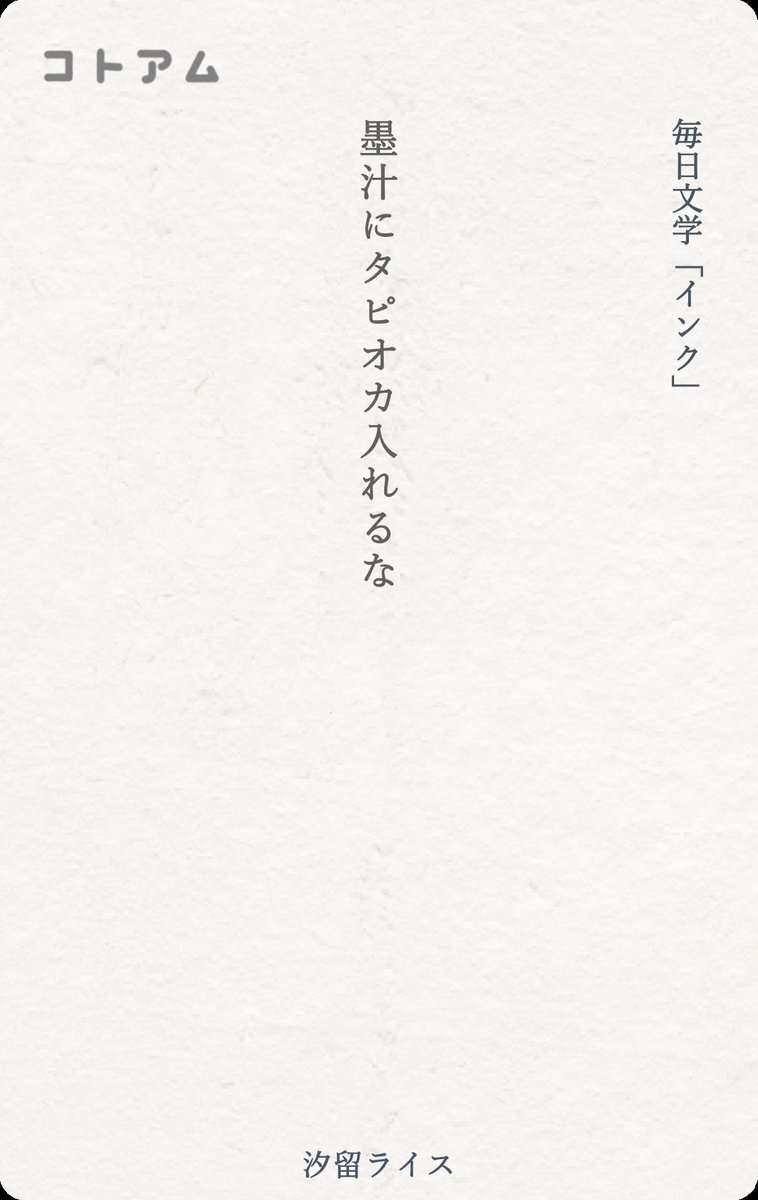 コトアム
毎日文学「インク」
墨汁にタピオカ入れるな
汐留ライス